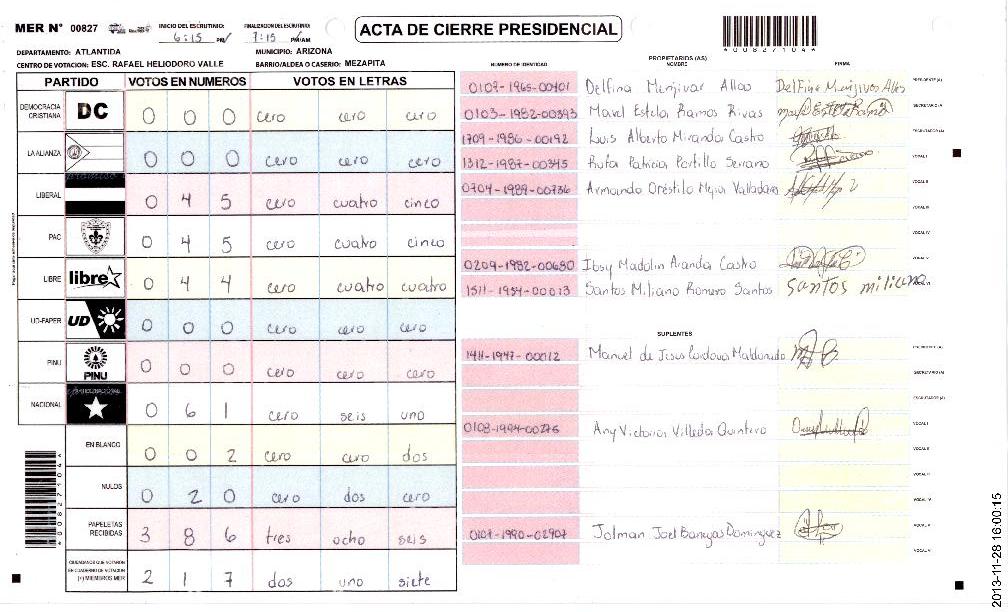 MER N° 00827
INICIO DEL ESCRUTINIO:
6:15 PM
FINALIZACION DEL ESCRUTINIO:
7:15 PM/AM
ACTA DE CIERRE PRESIDENCIAL
*00827104*
DEPARTAMENTO: ATLANTIDA
MUNICIPIO: ARIZONA
CENTRO DE VOTACION: ESC. RAFAEL HELIODORO VALLE
BARRIO/ALDEA O CASERIO: MEZAPITA
PARTIDO VOTOS EN NUMEROS VOTOS EN LETRAS
DEMOCRACIA CRISTIANA DC 0 0 0 cero cero cero
LA ALIANZA 0 0 0 cero cero cero
LIBERAL 0 4 5 cero cuatro cinco
PAC 0 4 5 cero cuatro cinco
LIBRE libre 0 4 4 cero cuatro cuatro
UD-FAPER UD 0 0 0 cero cero cero
PINU PINU 0 0 0 cero cero cero
NACIONAL 0 6 1 cero seis uno
EN BLANCO 0 0 2 cero cero dos
NULOS 0 2 0 cero dos cero
PAPELETAS RECIBIDAS 3 8 6 tres ocho seis
CIUDADANOS QUE VOTARON EN CUADERNO DE VOTACION (+) MIEMBROS MER 2 1 7 dos uno siete
*00827104*
PROPIETARIOS (AS)
NUMERO DE IDENTIDAD NOMBRE FIRMA
0107-1965-00401 Delfina Menjivar Allao PRESIDENTE (A)
0103-1982-00393 Mavel Estela Ramos Rivas SECRETARIO (A)
1709-1986-00192 Luis Alberto Miranda Castro ESCRUTADOR (A)
1312-1987-00345 Ruta Patricia Portillo Serrano VOCAL I
0704-1989-00736 Armando Oréstilo Mejia Valladares VOCAL II
VOCAL III
VOCAL IV
0209-1982-00680 Ibsy Madolin Aranda Castro VOCAL V
1511-1954-00013 Santos Miliano Romero Santos Santos miliano VOCAL VI
SUPLENTES
1411-1947-00012 Manuel de Jesus Cordova Maldonado PRESIDENTE (A)
SECRETARIO (A)
ESCRUTADOR (A)
0108-1994-00276 Any Victoria Villeda Quintero VOCAL I
VOCAL II
VOCAL III
VOCAL IV
0107-1990-02907 Jolman Joel Banegas Dominguez VOCAL V
VOCAL VI
2013-11-28 16:00:15